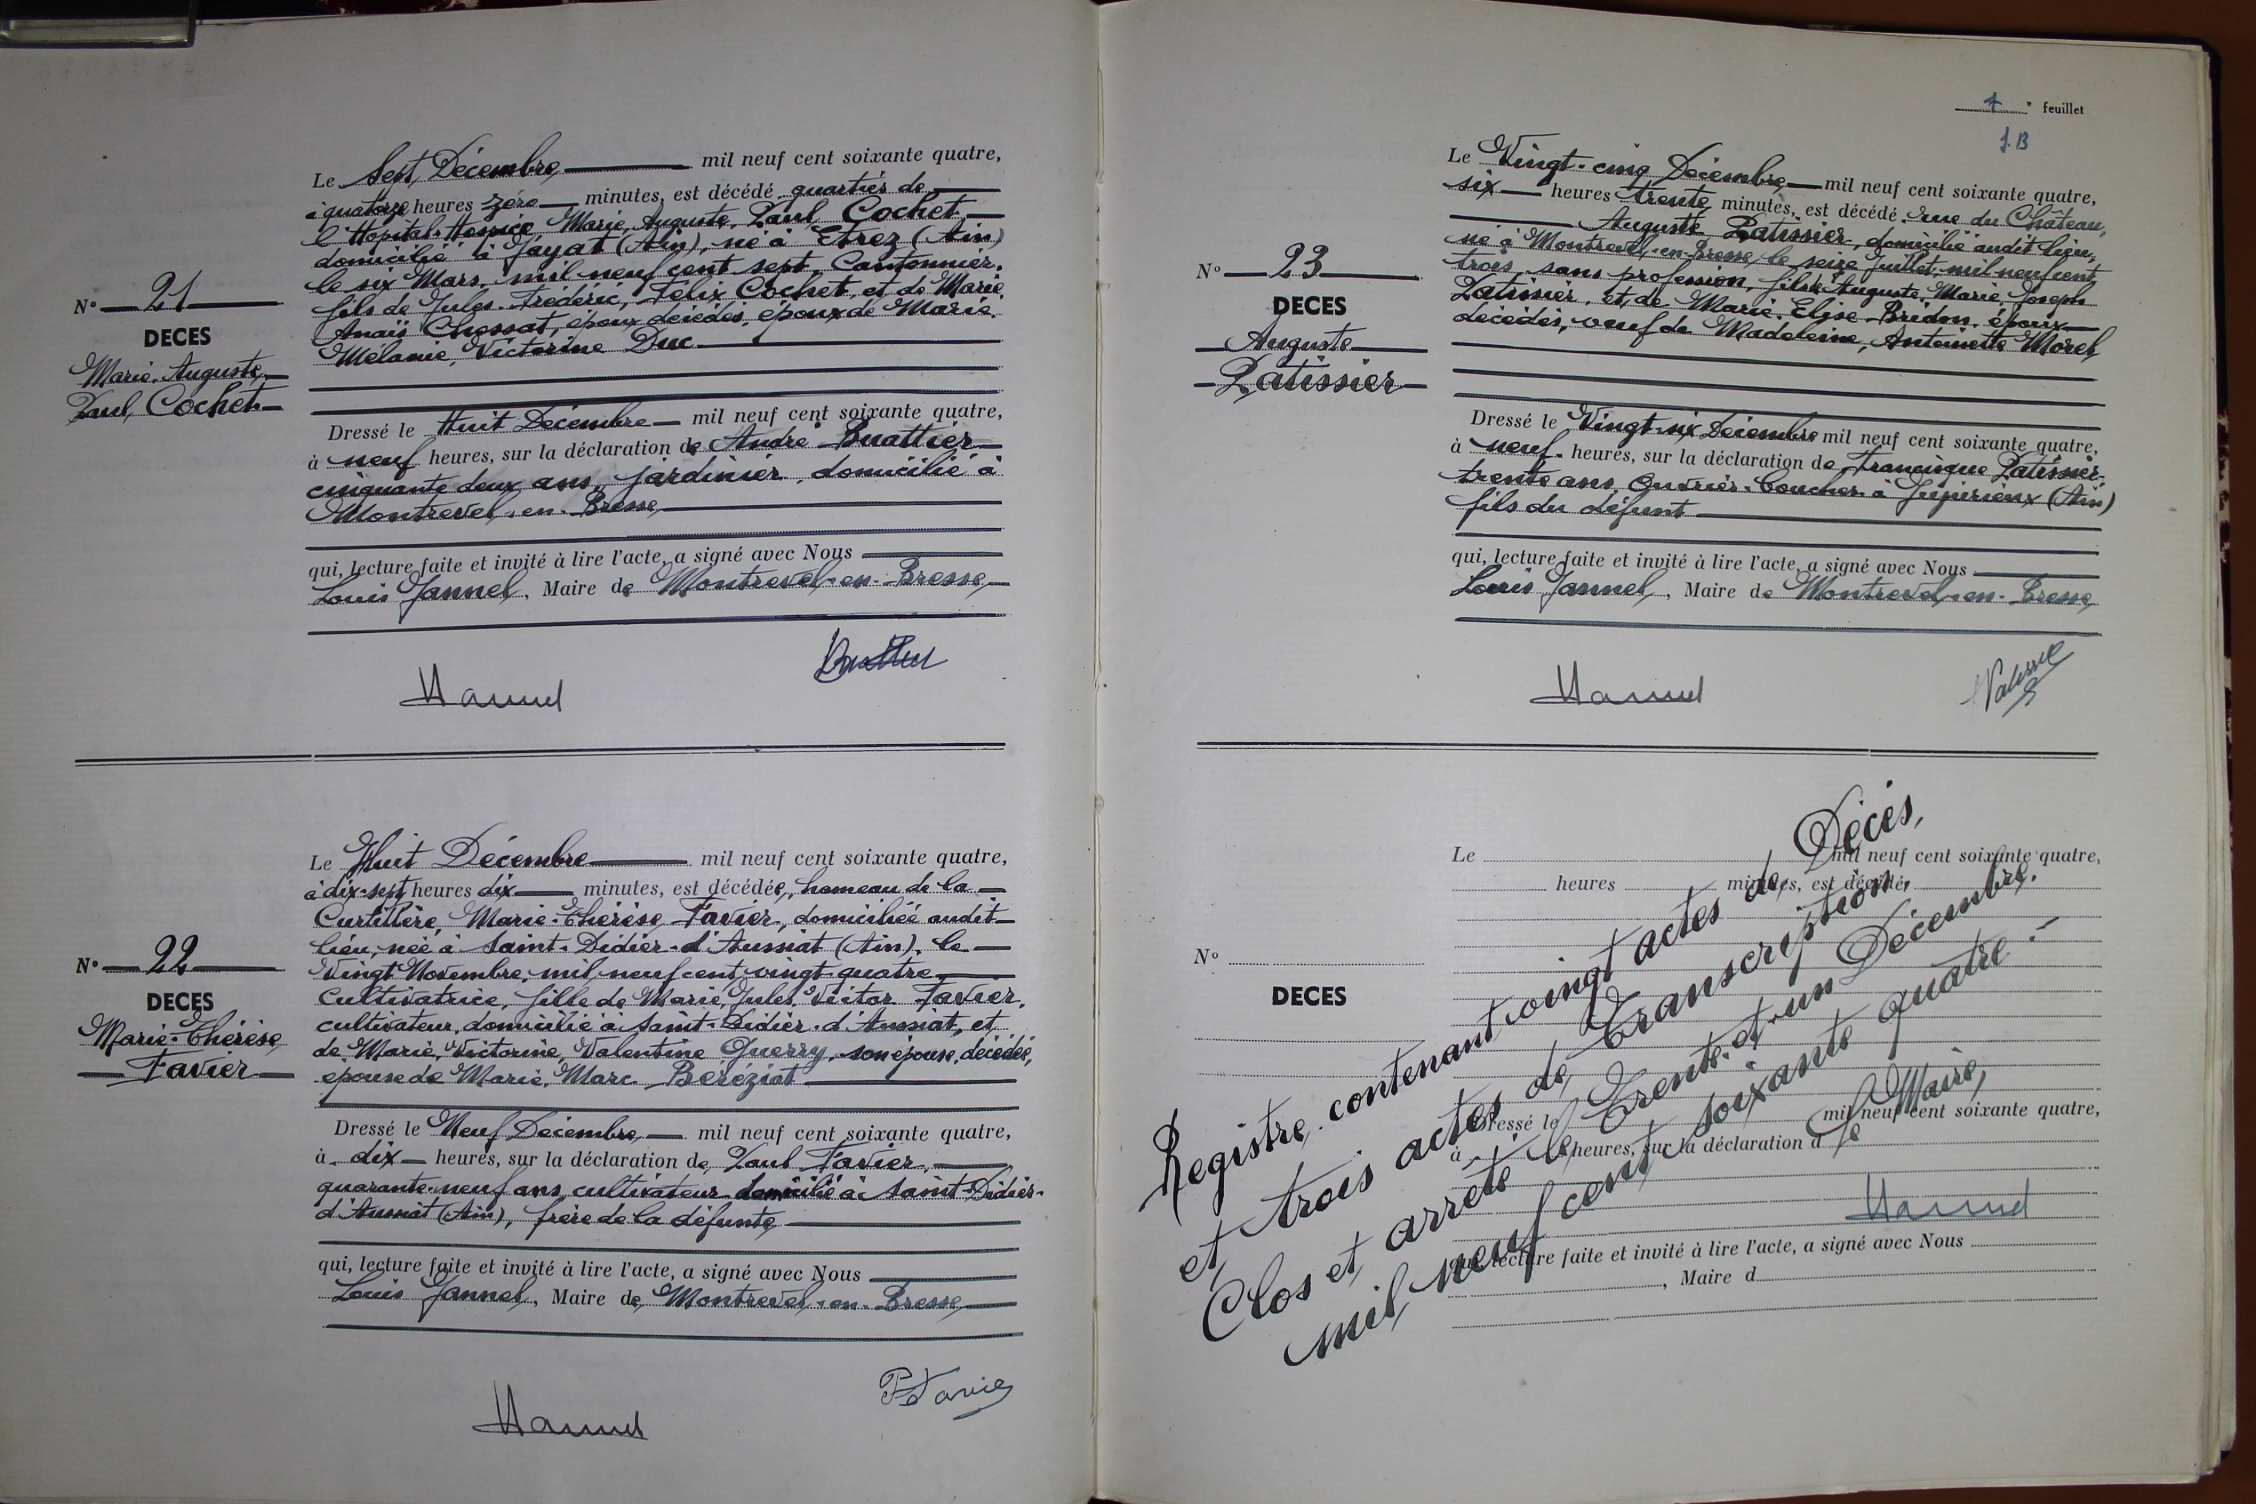 Le Sept Décembre mil neuf cent soixante quatre,
à quatorze heures zéro minutes, est décédé quartier de
l'Hôpital-Hospice Marie, Auguste, Paul Cochet,
domicilié à Jayat (Ain), né à Etrez (Ain)
le six Mars, mil neuf cent sept, Cantonnier,
fils de Jules, Frédéric, Félix Cochet, et de Marie,
Anaïs Chossat, époux décédés, époux de Marie,
Mélanie, Victorine Duc
N° 21
DECES
Marie, Auguste,
Paul, Cochet
Dressé le Huit Décembre mil neuf cent soixante quatre,
à neuf heures, sur la déclaration de André Buattier
cinquante deux ans, jardinier, domicilié à
Montrevel-en-Bresse
qui, lecture faite et invité à lire l'acte, a signé avec Nous
Louis Jannel, Maire de Montrevel-en-Bresse
Le Huit Décembre mil neuf cent soixante quatre,
à dix-sept heures dix minutes, est décédée, hameau de la
Curtillère Marie-Thérèse Favier, domiciliée audit
lieu, née à Saint-Didier-d'Aussiat (Ain), le
Vingt Novembre, mil neuf cent vingt quatre
Cultivatrice, fille de Marie, Jules, Victor Favier,
cultivateur, domicilié à Saint-Didier-d'Aussiat, et
de Marie, Victorine, Valentine Guerry, son épouse, décédée,
épouse de Marie, Marc Beréziat
N° 22
DECES
Marie-Thérèse
Favier
Dressé le Neuf Décembre mil neuf cent soixante quatre,
à dix heures, sur la déclaration de Paul Favier,
quarante-neuf ans, cultivateur domicilié à Saint-Didier-
d'Aussiat (Ain), frère de la défunte
qui, lecture faite et invité à lire l'acte, a signé avec Nous
Louis Jannel, Maire de Montrevel-en-Bresse
P Favier
4 e feuillet
J.B
Le Vingt-cinq Décembre mil neuf cent soixante quatre,
six heures trente minutes, est décédé rue du Château,
Auguste Patissier, domicilié audit lieu,
né à Montrevel-en-Bresse, le seize Juillet, mil neuf cent
trois, sans profession, fils de Auguste, Marie, Joseph
Patissier, et de Marie, Elise Bridon, époux
décédés, veuf de Madeleine, Antoinette Morel
N° 23
DECES
Auguste
Patissier
Dressé le Vingt-six Décembre mil neuf cent soixante quatre,
à neuf heures, sur la déclaration de Francisque Patissier
trente ans, Ouvrier-boucher à Jujurieux (Ain)
fils du défunt
qui, lecture faite et invité à lire l'acte, a signé avec Nous
Louis Jannel, Maire de Montrevel-en-Bresse
Le mil neuf cent soixante quatre,
heures minutes, est décédé
N°
DECES
Dressé le mil neuf cent soixante quatre,
à heures, sur la déclaration d
qui, lecture faite et invité à lire l'acte, a signé avec Nous
, Maire d
Registre, contenant vingt actes de Décès,
et trois actes de Transcription.
Clos et arrêté le Trente-et-un Décembre,
mil neuf cent soixante quatre.
Le Maire,